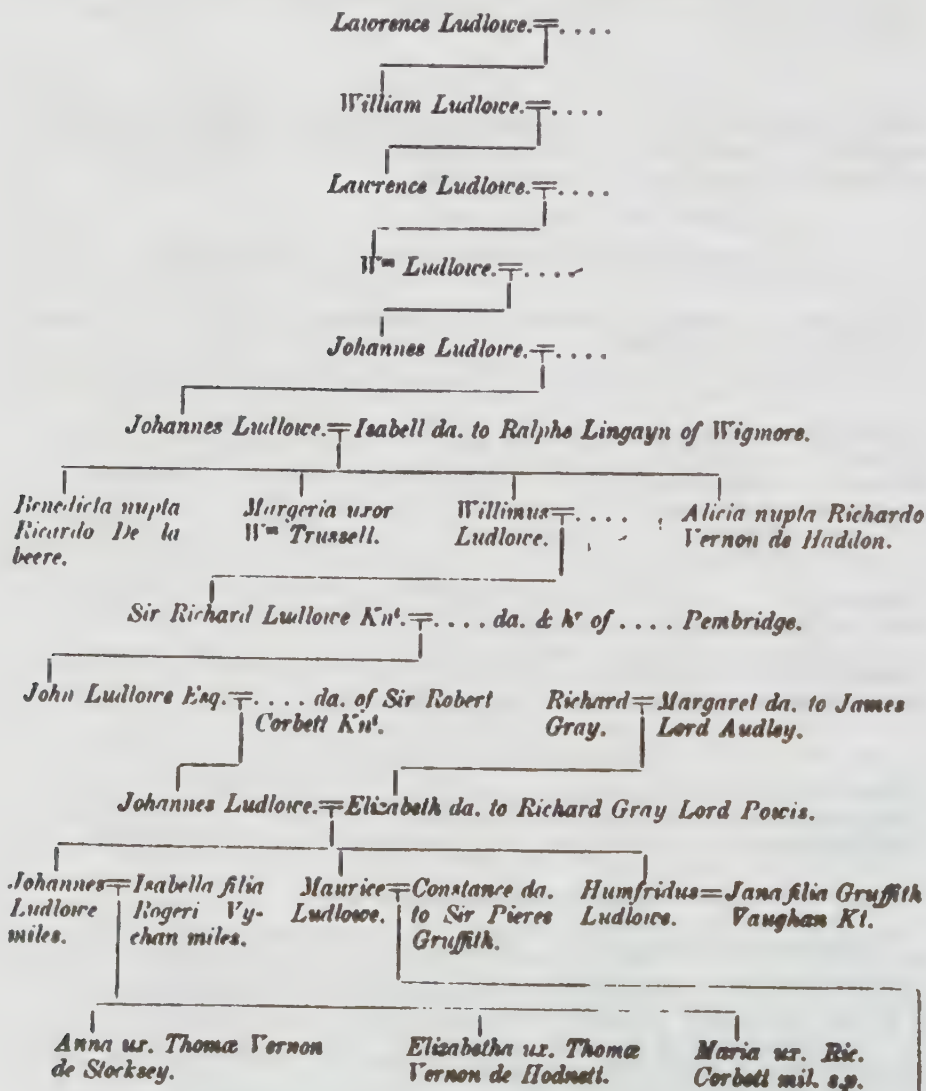 Lawrence Ludlowe.=....
William Ludlowe.=....
Lawrence Ludlowe.=....
Wᵐ Ludlowe.=....
Johannes Ludlowe.=....
Johannes Ludlowe.=Isabell da. to Ralphe Lingayn of Wigmore.
Benedicta nupta
Ricardo De la
beere.
Margeria uxor
Wᵐ Trussell.
Willimus=....
Ludlowe.
Alicia nupta Richardo
Vernon de Haddon.
Sir Richard Ludlowe Knᵗ.=.... da. & hʳ of .... Pembridge.
John Ludlowe Esq.=.... da. of Sir Robert
Corbett Knᵗ.
Richard=Margaret da. to James
Gray. Lord Audley.
Johannes Ludlowe.=Elizabeth da. to Richard Gray Lord Powis.
Johannes=Isabella filia
Ludlowe Rogeri Vy-
miles. chan miles.
Maurice=Constance da.
Ludlowe. to Sir Pieres
Gruffith.
Humfridus=Jana filia Gruffith
Ludlowe. Vaughan Kt.
Anna ux. Thomæ Vernon
de Stocksey.
Elizabetha ux. Thomæ
Vernon de Hodnett.
Maria ux. Ric.
Corbett mil. s.p.